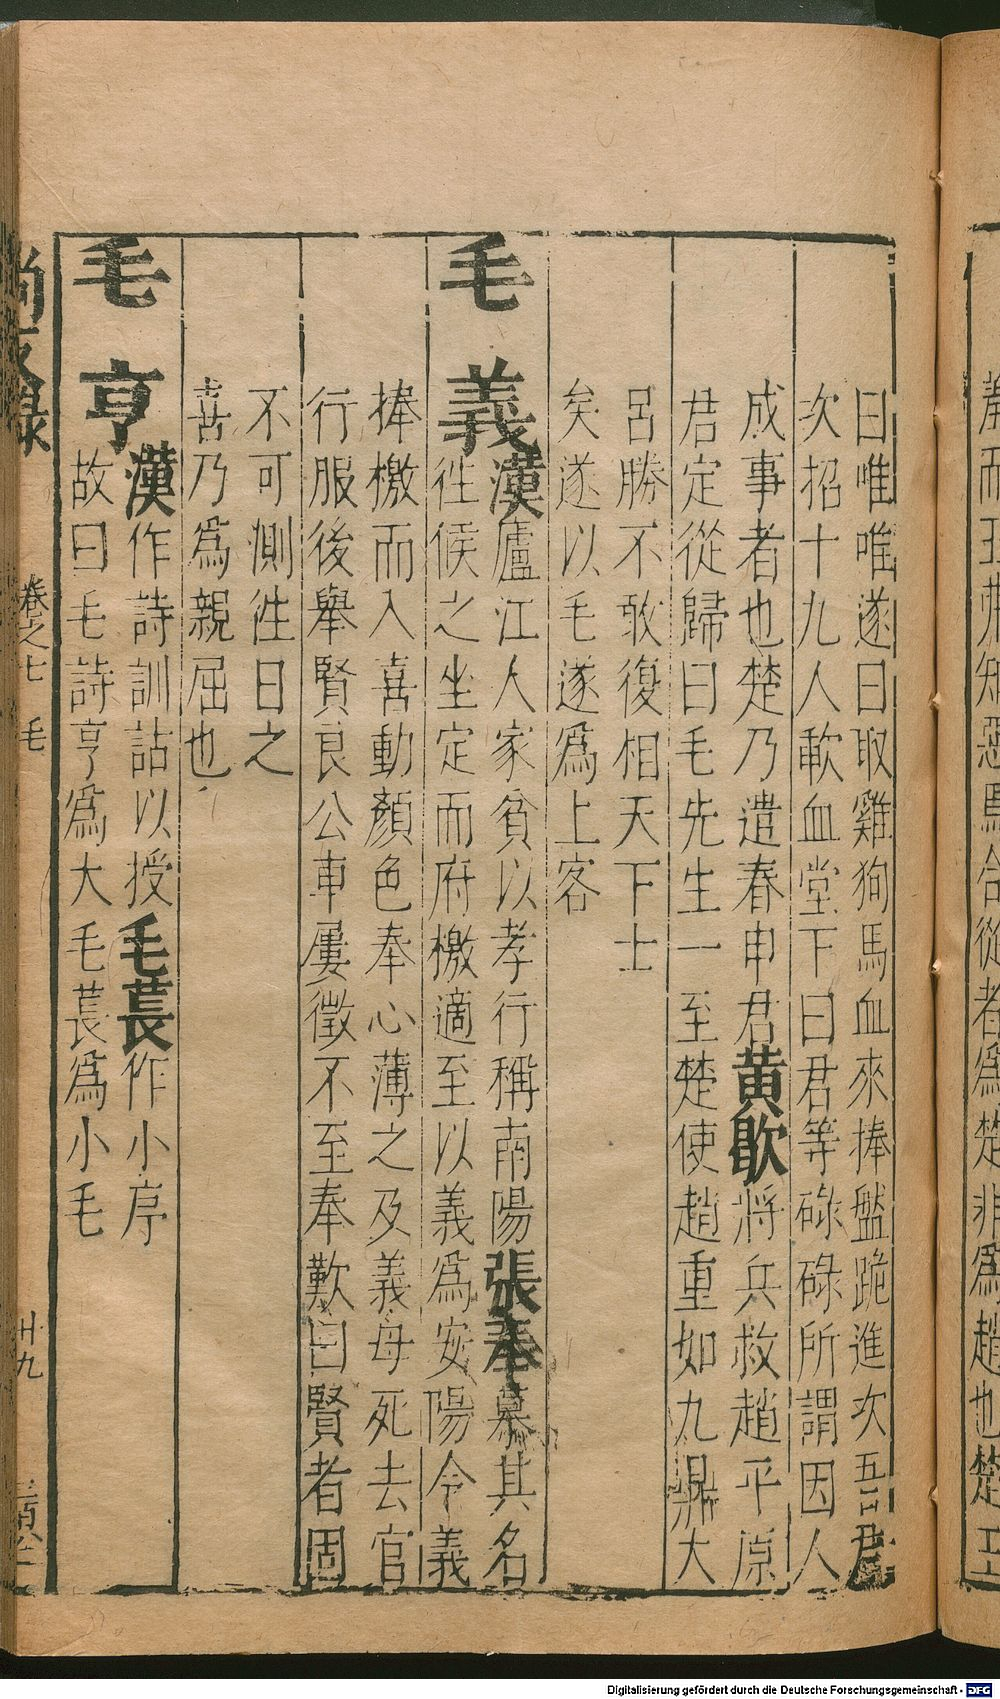 曰唯唯遂曰取雞狗馬血來捧盤跪進次吾君
次招十九人歃血堂下曰君等碌碌所謂因人
成事者也楚乃遣春申君黄歇將兵救趙平原
君定從歸曰毛先生一至楚使趙重如九鼎大
呂勝不敢復相天下士
矣遂以毛遂爲上客
毛義漢廬江人家貧以孝行稱南陽張奉慕其名
徃候之坐定而府檄適至以義爲安陽令義
捧檄而入喜動顏色奉心薄之及義母死去官
行服後舉賢良公車屢徵不至奉歎曰賢者固
不可測徃日之
喜乃爲親屈也
毛亨漢作詩訓詁以授毛萇作小序
故曰毛詩亨爲大毛萇爲小毛
尚友錄 卷之七 毛 卄九
羗而五

知惡焉合從者爲楚非爲趙也楚王
Digitalisierung gefördert durch die Deutsche Forschungsgemeinschaft - DFG